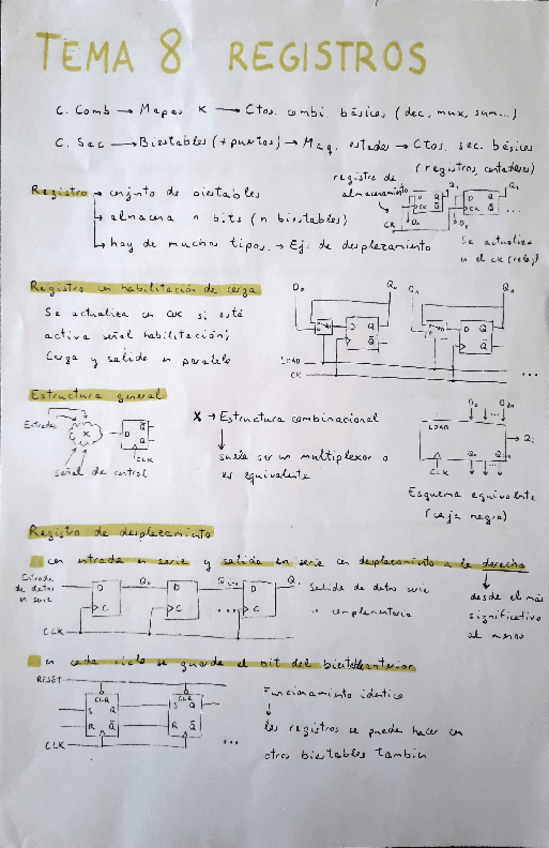 TEMA 8 REGISTROS
C. Comb → Mapas K → Ctos. combi. básicos (dec, mux, sum...)
C. Sec → Biestables (+ puertas) → Maq. estados → Ctos. sec. básicos
(registros, contadores)
Registro → conjunto de biestables
→ almacena n bits (n biestables)
→ hay de muchos tipos. → Ej: de desplazamiento
registro de
almacenamiento
D Q
CK Q̅
D Q
CK Q̅
CK
...
Se actualiza
en el CK (reloj)
Registro con habilitación de carga
Se actualiza con CLK si está
activa señal habilitación;
Carga y salida en paralelo
D₀ Q₀
D Q
Q̅
D Q
Q̅
LOAD
CK
...
Estructura general
Entradas
X
CLK
señal de control
X → Estructura combinacional
suele ser un multiplexor o
es equivalente
LOAD
CLK
Esquema equivalente
(caja negra)
Registro de desplazamiento
con entrada en serie y salida en serie con desplazamiento a la derecha
Entrada
de datos
en serie
D
C
Q₀
D
C
...
D
C
CLK
Salida de datos serie
" complementaria
desde el más
significativo
al menos
en cada ciclo se guarda el bit del biestable anterior
RESET
CLR
S Q
R Q̅
CLR
S Q
R Q̅
CLK
...
Funcionamiento idéntico
los registros se pueden hacer con
otros biestables también